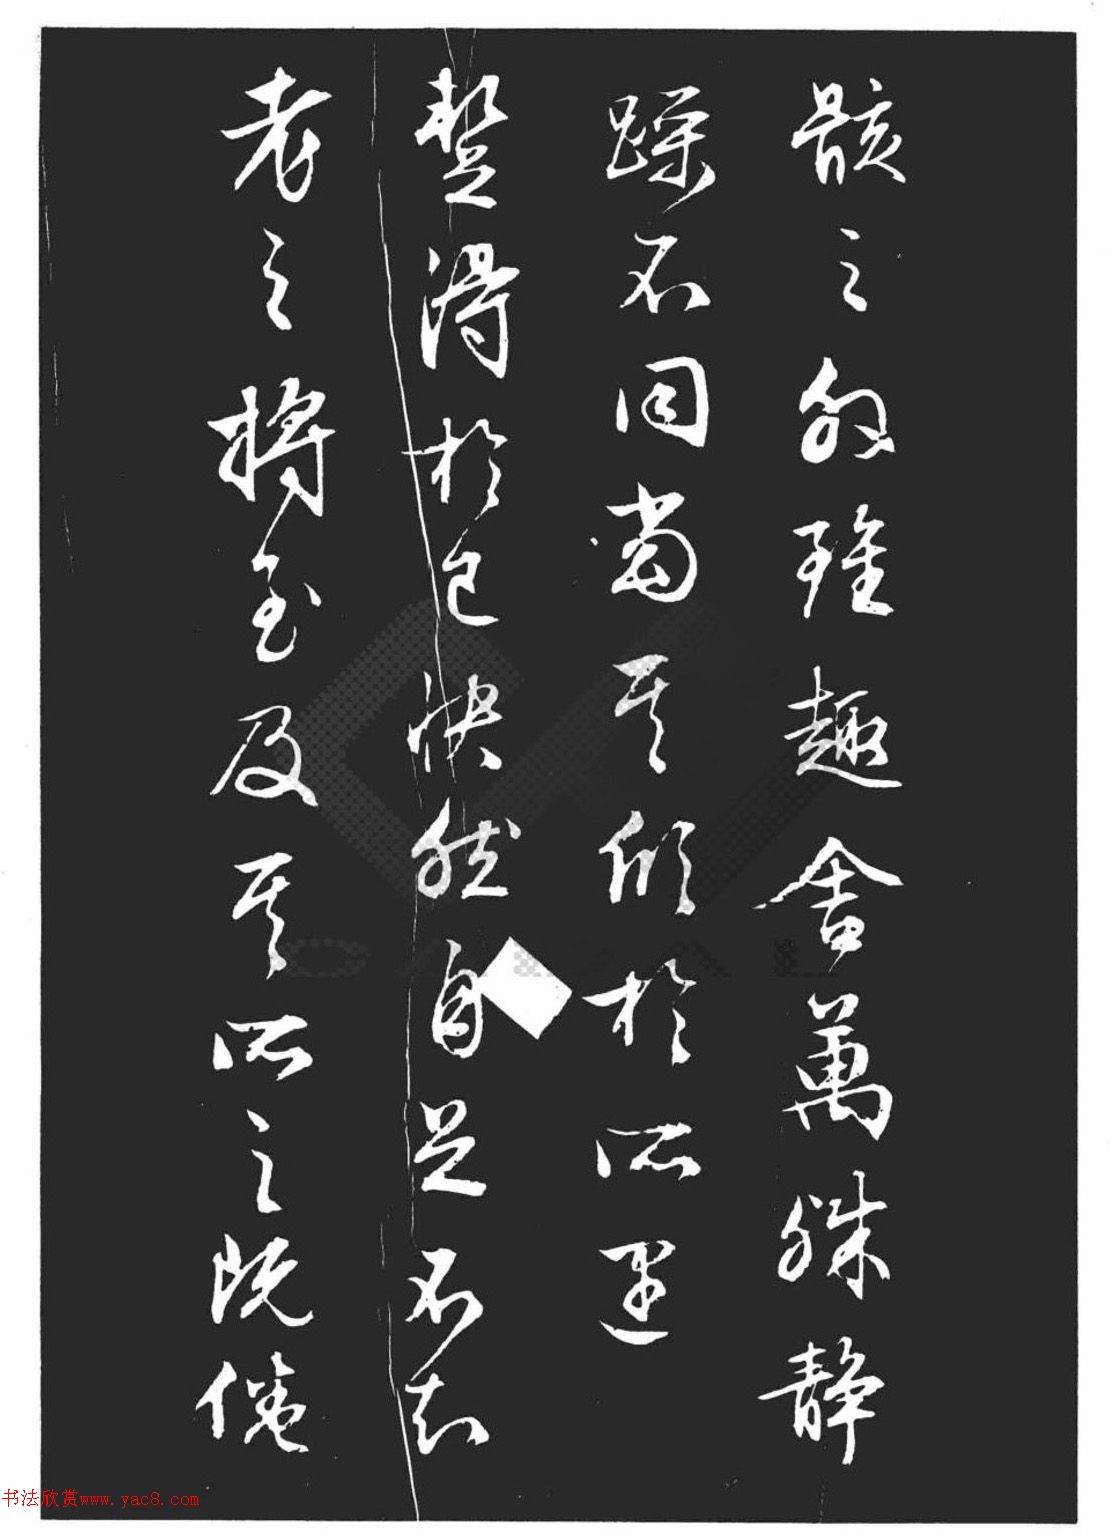 骸之外雖趣舍萬殊靜
躁不同當其欣於所遇
蹔得於己快然自足不知
老之將至及其所之既倦
书法欣赏www.yac8.com